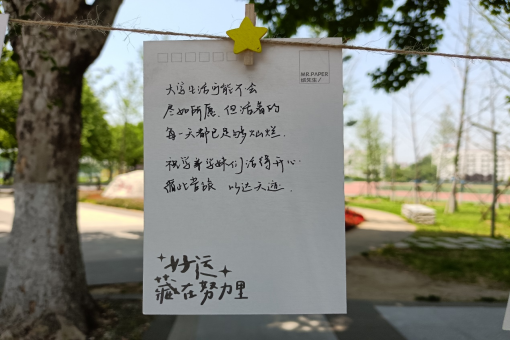 MR.PAPER
纸先生/
大学生活可能不会
尽如所愿,但活着的
每一天都已足够灿烂.
祝学弟学妹们活得开心
循此苦旅 以达天边.
好运
藏在努力里